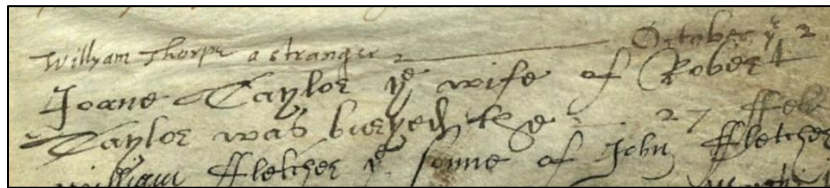 Willyam Thorpe a stranger October ye 2
Joane Taylor ye wife of Robert
Taylor was buryed the 27 ffeb
William ffletcher ye sonne of John ffletcher